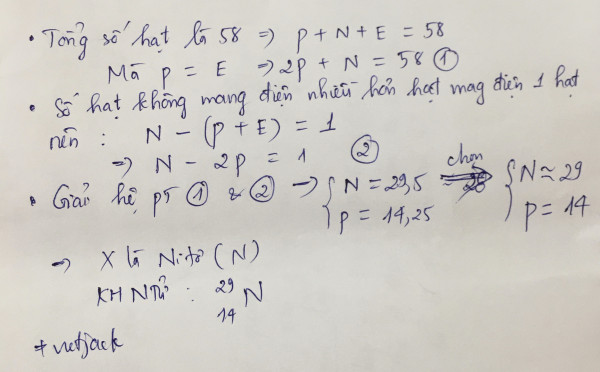 • Tổng số hạt là 58 => P + N + E = 58
Mà P = E => 2P + N = 58 ①
• Số hạt không mang điện nhiều hơn hạt mag điện 1 hạt
nên : N - (P + E) = 1
=> N - 2P = 1 ②
• Giải hệ pt ① & ② → { N = 29,5 chọn { N ≈ 29
p = 14,25 p = 14
→ X là Nitơ (N)
KHNTử : 29 14 N
+ vietjack